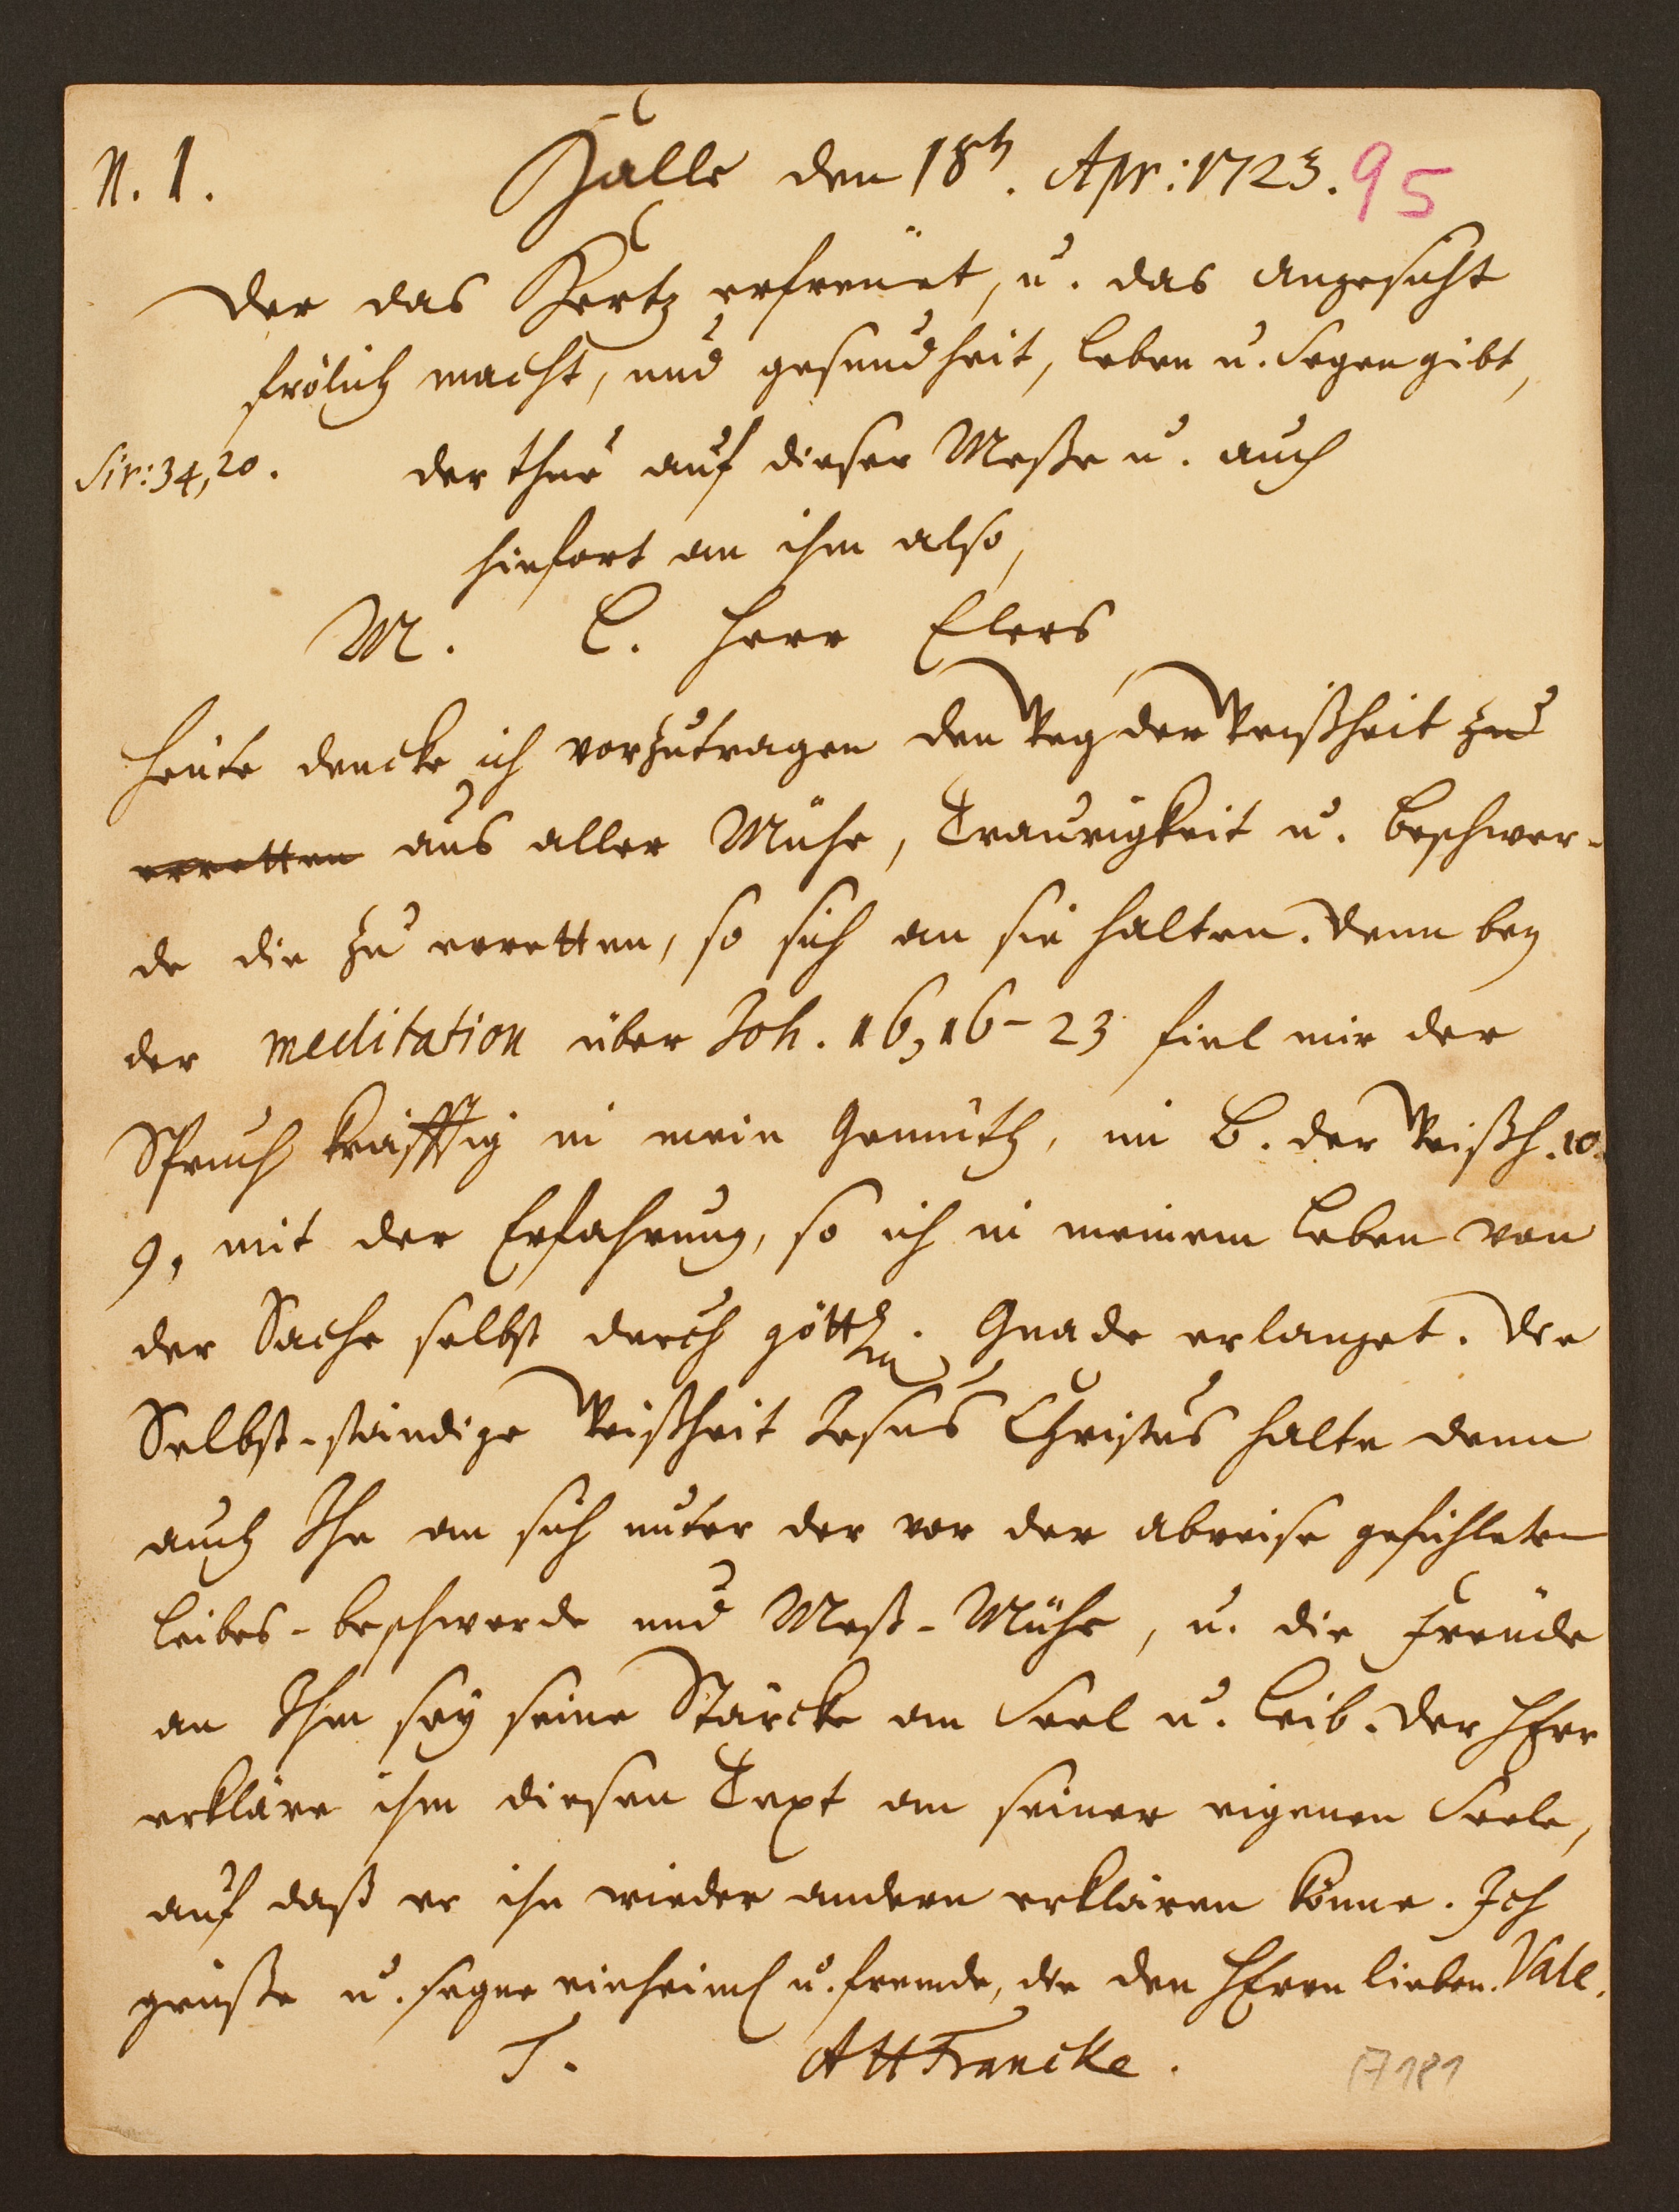 N. 1. Halle den 18ten. Apr: 1723. 95
Der das Hertz erfreüet, u. das angesicht
frölich macht, und gesundheit, leben u. Segen gibt,
Sir: 34, 20. der thue auf dieser Messe u. auch
hinfort an ihm also,
M. L. Herr Elers
Heüte dencke ich vorzutragen den Weg der Weißheit zu
erretten aus aller Mühe, Traurigkeit u. beschwer-
de die zu erretten, so sich an sie halten. Denn bey
der meditation über Joh. 16, 16-23 fiel mir der
Spruch kräfftig in mein Gemüth, im B. der Weißh. 10.
9, mit der Erfahrung, so ich in meinem leben von
der Sache selbst durch göttl. Gnade erlanget. Die
Selbst-ständige Weißheit Jesus Christus halte denn
auch Ihn an sich unter der vor der abreise gefühleten
leibes-beschwerde und Meß-Mühe, u. die Freüde
an Ihm sey seine Stärcke an Seel u. leib. Der HErr
erkläre ihm diesen Text an seiner eigenen Seele,
auf daß er ihn wieder andern erklären könne. Ich
grüsse u. segne einheimsch u. fremde, die den HErrn lieben. Vale.
T. AHFrancke.
17181